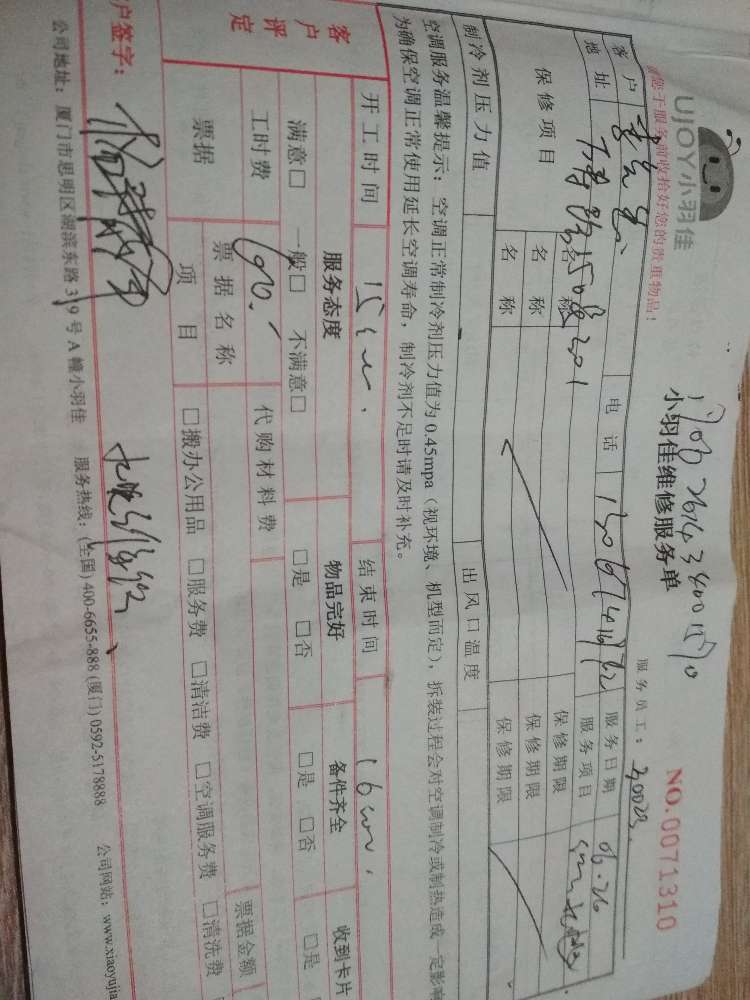 UJOY小羽佳
小羽佳维修服务单
NO.0071310
您于服务前收拾好您的贵重物品!
服务员工:
客户 电话 服务日期 06.26
地址 服务项目
保修项目 名称 保修期限
名称 保修期限
名称 保修期限
制冷剂压力值 出风口温度
空调服务温馨提示:空调正常制冷剂压力值为0.45mpa(视环境、机型而定),拆装过程会对空调制冷或制热造成一定影响
为确保空调正常使用延长空调寿命,制冷剂不足时请及时补充。
开工时间 结束时间
客户评定 服务态度 物品完好 备件齐全 收到卡片
满意□ 一般□ 不满意□ □是 □否 □是 □否 □是
工时费 代购材料费
票据 票据名称 票据金额
项目 □搬办公用品 □服务费 □清洁费 □空调服务费 □清洗费
户签字:
公司地址:厦门市思明区湖滨东路319号A幢小羽佳 服务热线:(全国)400-6655-888(厦门)0592-5178888 公司网站:www.xiaoyujia